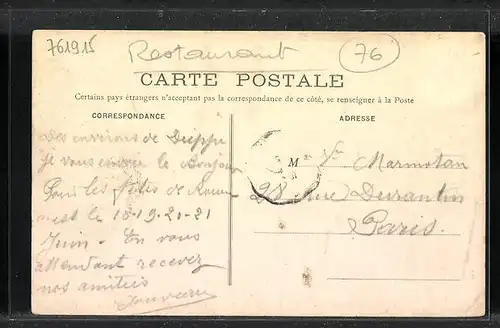 761915
Restaurant
76
CARTE POSTALE
Certains pays étrangers n'acceptant pas la correspondance de ce côté, se renseigner à la Poste
CORRESPONDANCE
ADRESSE
Des environs de Dieppe
je vous envoie le Bonjour
Pour les fêtes de Rouen
c'est le 18-19-20-21
Juin. En vous
attendant recevez
nos amitiés
M Marmotan
28 rue Durantin
Paris.